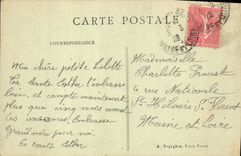 CARTE POSTALE
CORRESPONDANCE
Ma chère petite Lolotte
Ta tante Esther t'embrasse
bien, et compte maintenant
plus que cinq mois avant
les vacances. Embrasse
Grand'mère pour moi.
Ta tante Esther
Mademoiselle
Charlotte Proust
6 rue Nationale
St-Hilaire St Florent
Maine et Loire